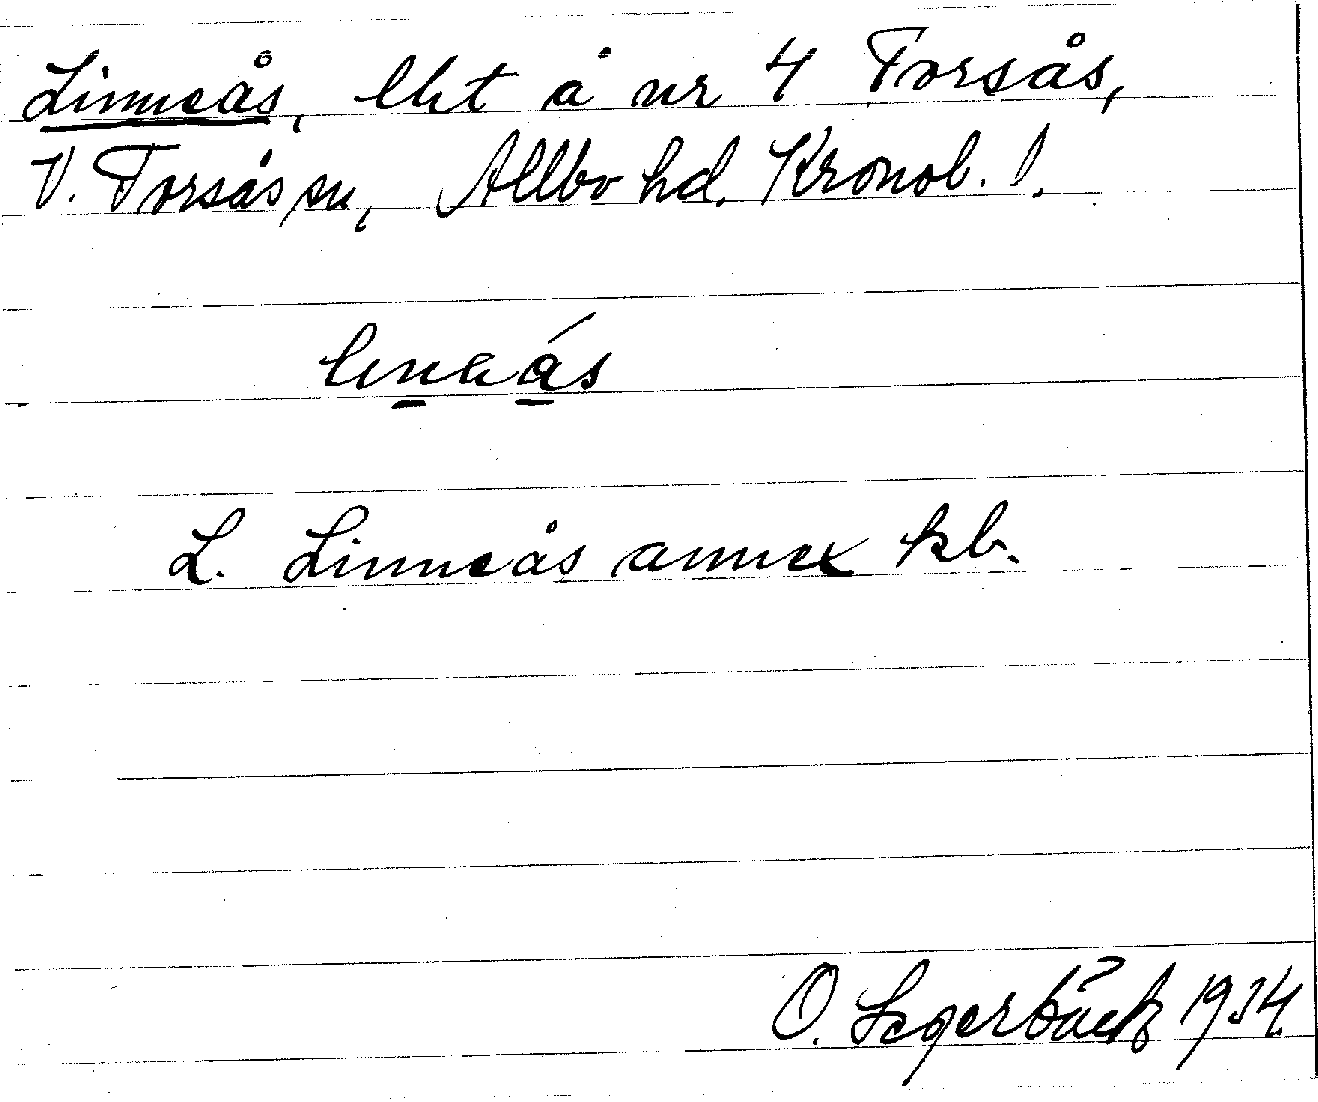 Linneås, lht å nr 4 Torsås,
V. Torsås sn, Allbo hd. Kronob. l.
L. Linneås annex kb.
O. Segerbäck 1934.